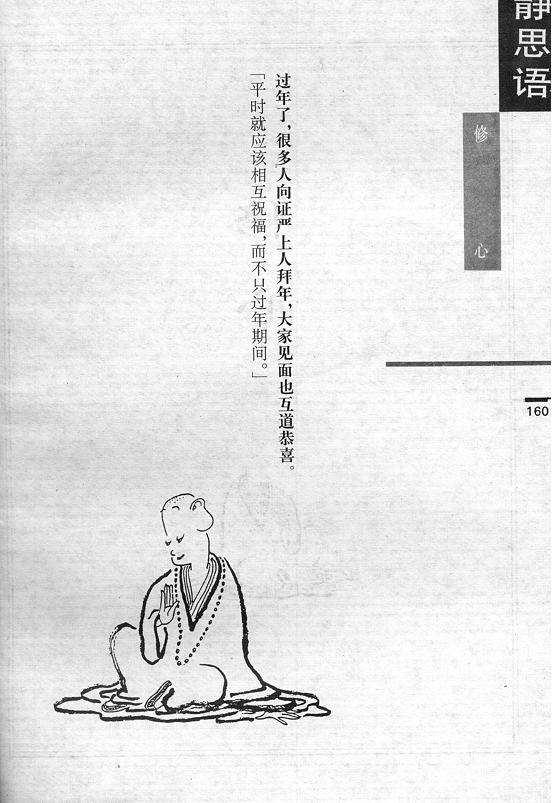 静思语
修心
过年了，很多人向证严上人拜年，大家见面也互道恭喜。
「平时就应该相互祝福，而不只过年期间。」
160